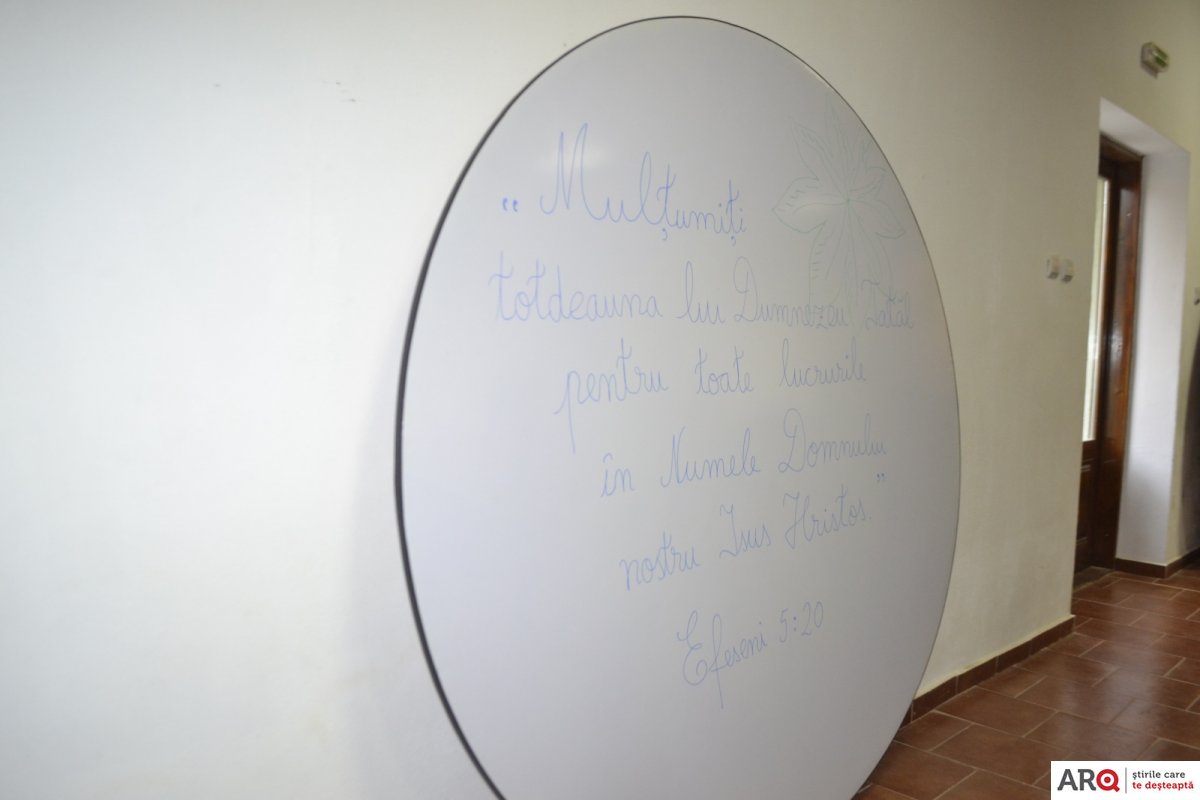 "Mulțumiți
totdeauna lui Dumnezeu Tatăl
pentru toate lucrurile
în Numele Domnului
nostru Isus Hristos."
Efeseni 5:20
ARQ știrile care
te deșteaptă